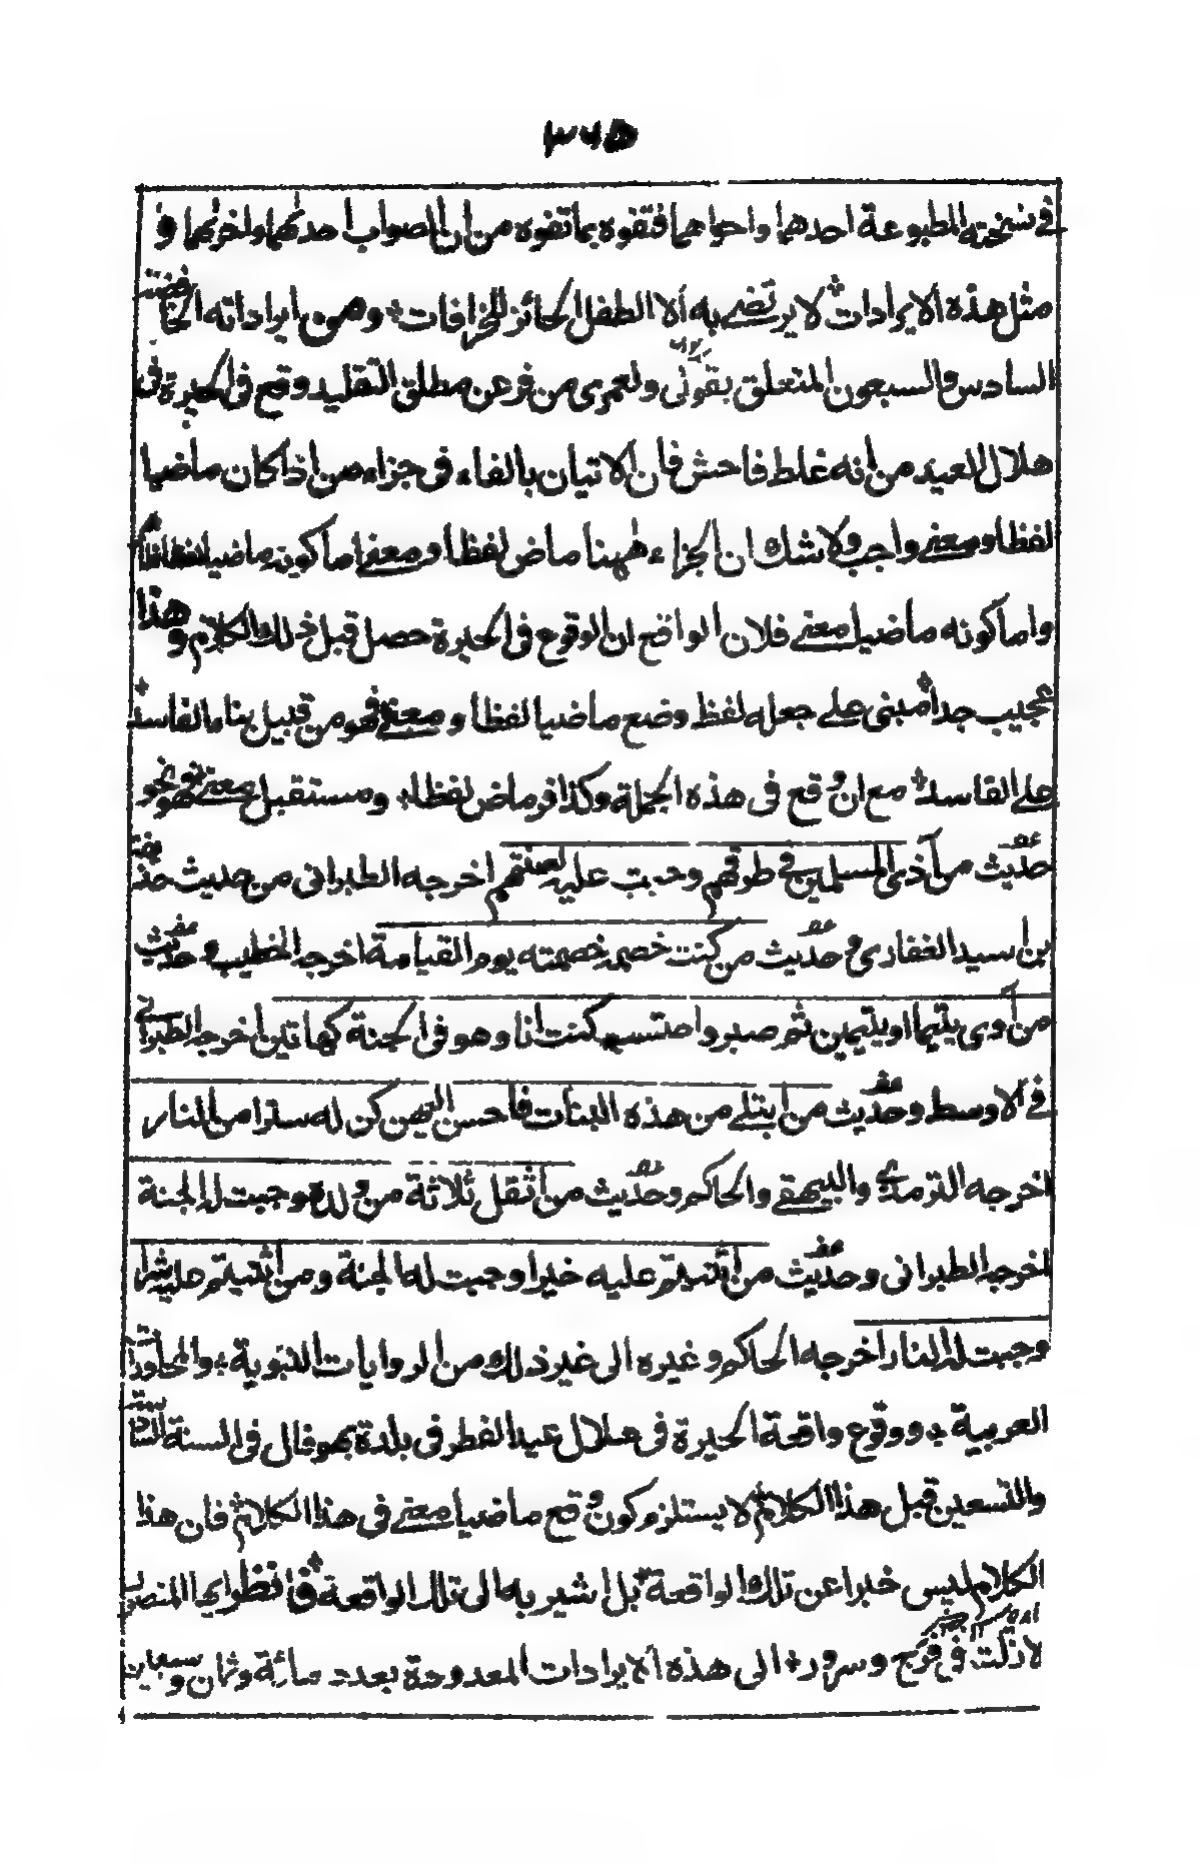 ٣٦٥
في نسخته المطبوعة احدهما واحواهما فتفوه بما تفوه من ان الصواب احدٰهما واخرٰهما و
مثل هذه الايرادات لا يرتضي به الا الطفل الحائز للخرافات ومن ايراداته
السادس والسبعون المتعلق بقولي ولعمري من فر عن مطلق التقليد وقع في الحيرة في
هلال العيد من انه غلط فاحش فان الاتيان بالفاء في جزاء من اذا كان ماضيا
لفظا ومعنى واجب ولا شك ان الجزاء ههنا ماض لفظا ومعنى اما كونه ماضيا لفظا
واما كونه ماضيا معنى فلان الواقع ان الوقوع في الحيرة حصل قبل ذلك الكلام وهذا
عجيب جدا مبني على جعله لفظ وضع ماضيا لفظا ومعنى فهو من قبيل بناء الفاسد
على الفاسد مع ان وقع في هذه الجملة وكذا فر ماض لفظا ومستقبل معنى فهو نحو
حديث من آذى المسلمين في طرقهم وجبت عليه لعنتهم اخرجه الطبراني من حديث حذيفة
بن اسيد الغفاري وحديث من كنت خصمه خصمته يوم القيامة اخرجه الخطيب وحديث
من آوى يتيما او يتيمين ثم صبر واحتسب كنت انا وهو في الجنة كهاتين اخرجه الطبراني
في الاوسط وحديث من ابتلي من هذه البنات فاحسن اليهن كن له سترا من النار
اخرجه الترمذي والبيهقي والحاكم وحديث من اثقل ثلاثة من ولده وجبت له الجنة
اخرجه الطبراني وحديث من اثنيتم عليه خيرا وجبت له الجنة ومن اثنيتم عليه شرا
وجبت له النار اخرجه الحاكم وغيره الى غير ذلك من الروايات النبوية والمحاورات
العربية ووقوع واقعة الحيرة في هلال عيد الفطر في بلدة بهوفال في السنة
والتسعين قبل هذا الكلام لا يستلزم كون وقع ماضيا معنى في هذا الكلام فان هذا
الكلام ليس خبرا عن تلك الواقعة بل اشير به الى تلك الواقعة فانظر ايها المنصف
لا زلت في فرح وسرور الى هذه الايرادات المعدودة بعدد مائة وثمان وسبعين